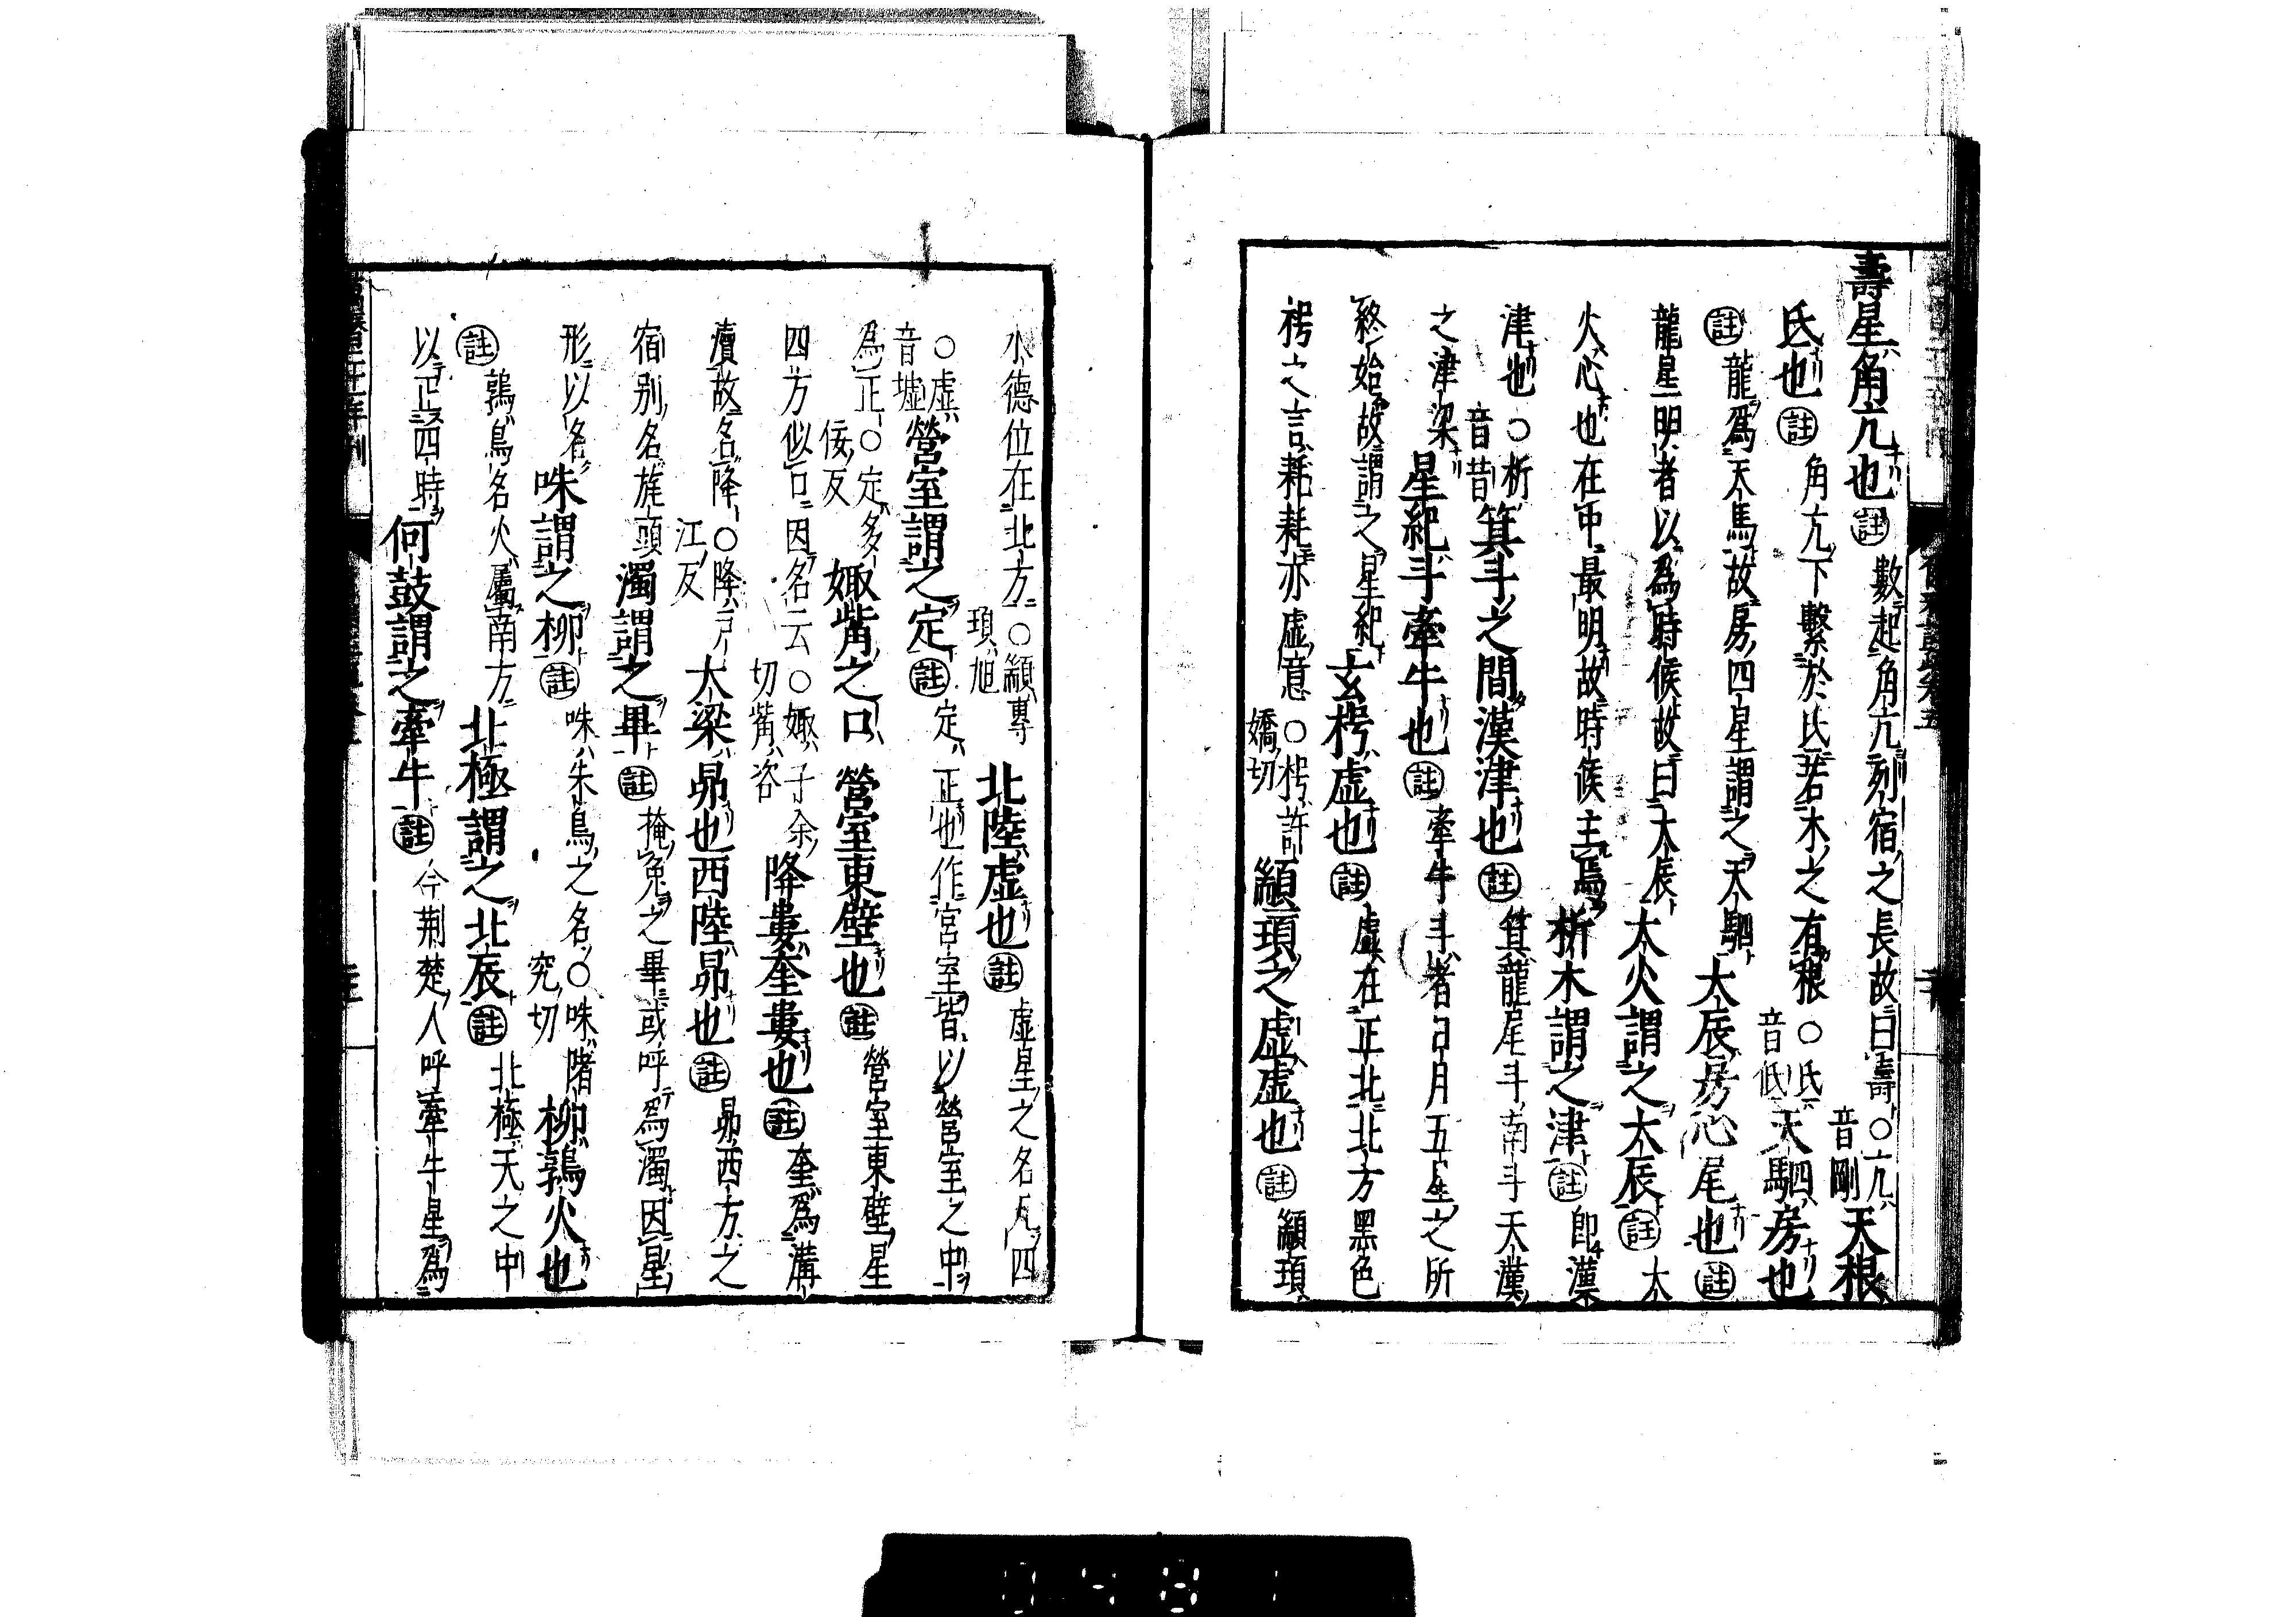 壽星角亢也註數起角亢列宿之長故曰壽○亢音剛天根
氐也註角亢下繫於氐若木之有根○氐音低天駟房也
註龍爲天馬故房四星謂之天駟大辰房心尾也註
龍星明者以爲時候故曰大辰大火謂之大辰註大
火心也在中最明故時候主焉析木謂之津註即漢
津也○析音昔箕斗之間漢津也註箕龍尾斗南斗天漢
之津梁星紀斗牽牛也註牽牛斗者日月五星之所
終始故謂之星紀玄枵虛也註虛在正北北方黑色
枵之言耗耗亦虛意○枵許嬌切顓頊之虛虛也註顓頊
水德位在北方○顓專頊旭北陸虛也註虛星之名凡四
○虛音墟營室謂之定註定正也作宮室皆以營室之中
為正○定多佞反娵觜之口營室東壁也註營室東壁星
四方似口因名云○娵子余切觜咨降婁奎婁也註奎爲溝
瀆故名降○降戶江反大梁昴也西陸昴也註昴西方之
宿別名旄頭濁謂之畢註掩兔之畢或呼爲濁因星
形以名咮謂之柳註咮朱鳥之名○咮賭究切柳鶉火也
註鶉鳥名火屬南方北極謂之北辰註北極天之中
以正四時何鼓謂之牽牛註今荊楚人呼牽牛星爲